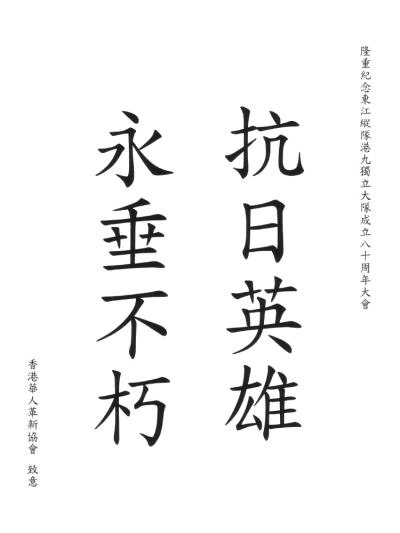 隆重紀念東江縱隊港九獨立大隊成立八十周年大會
抗日英雄
永垂不朽
香港華人革新協會 致意